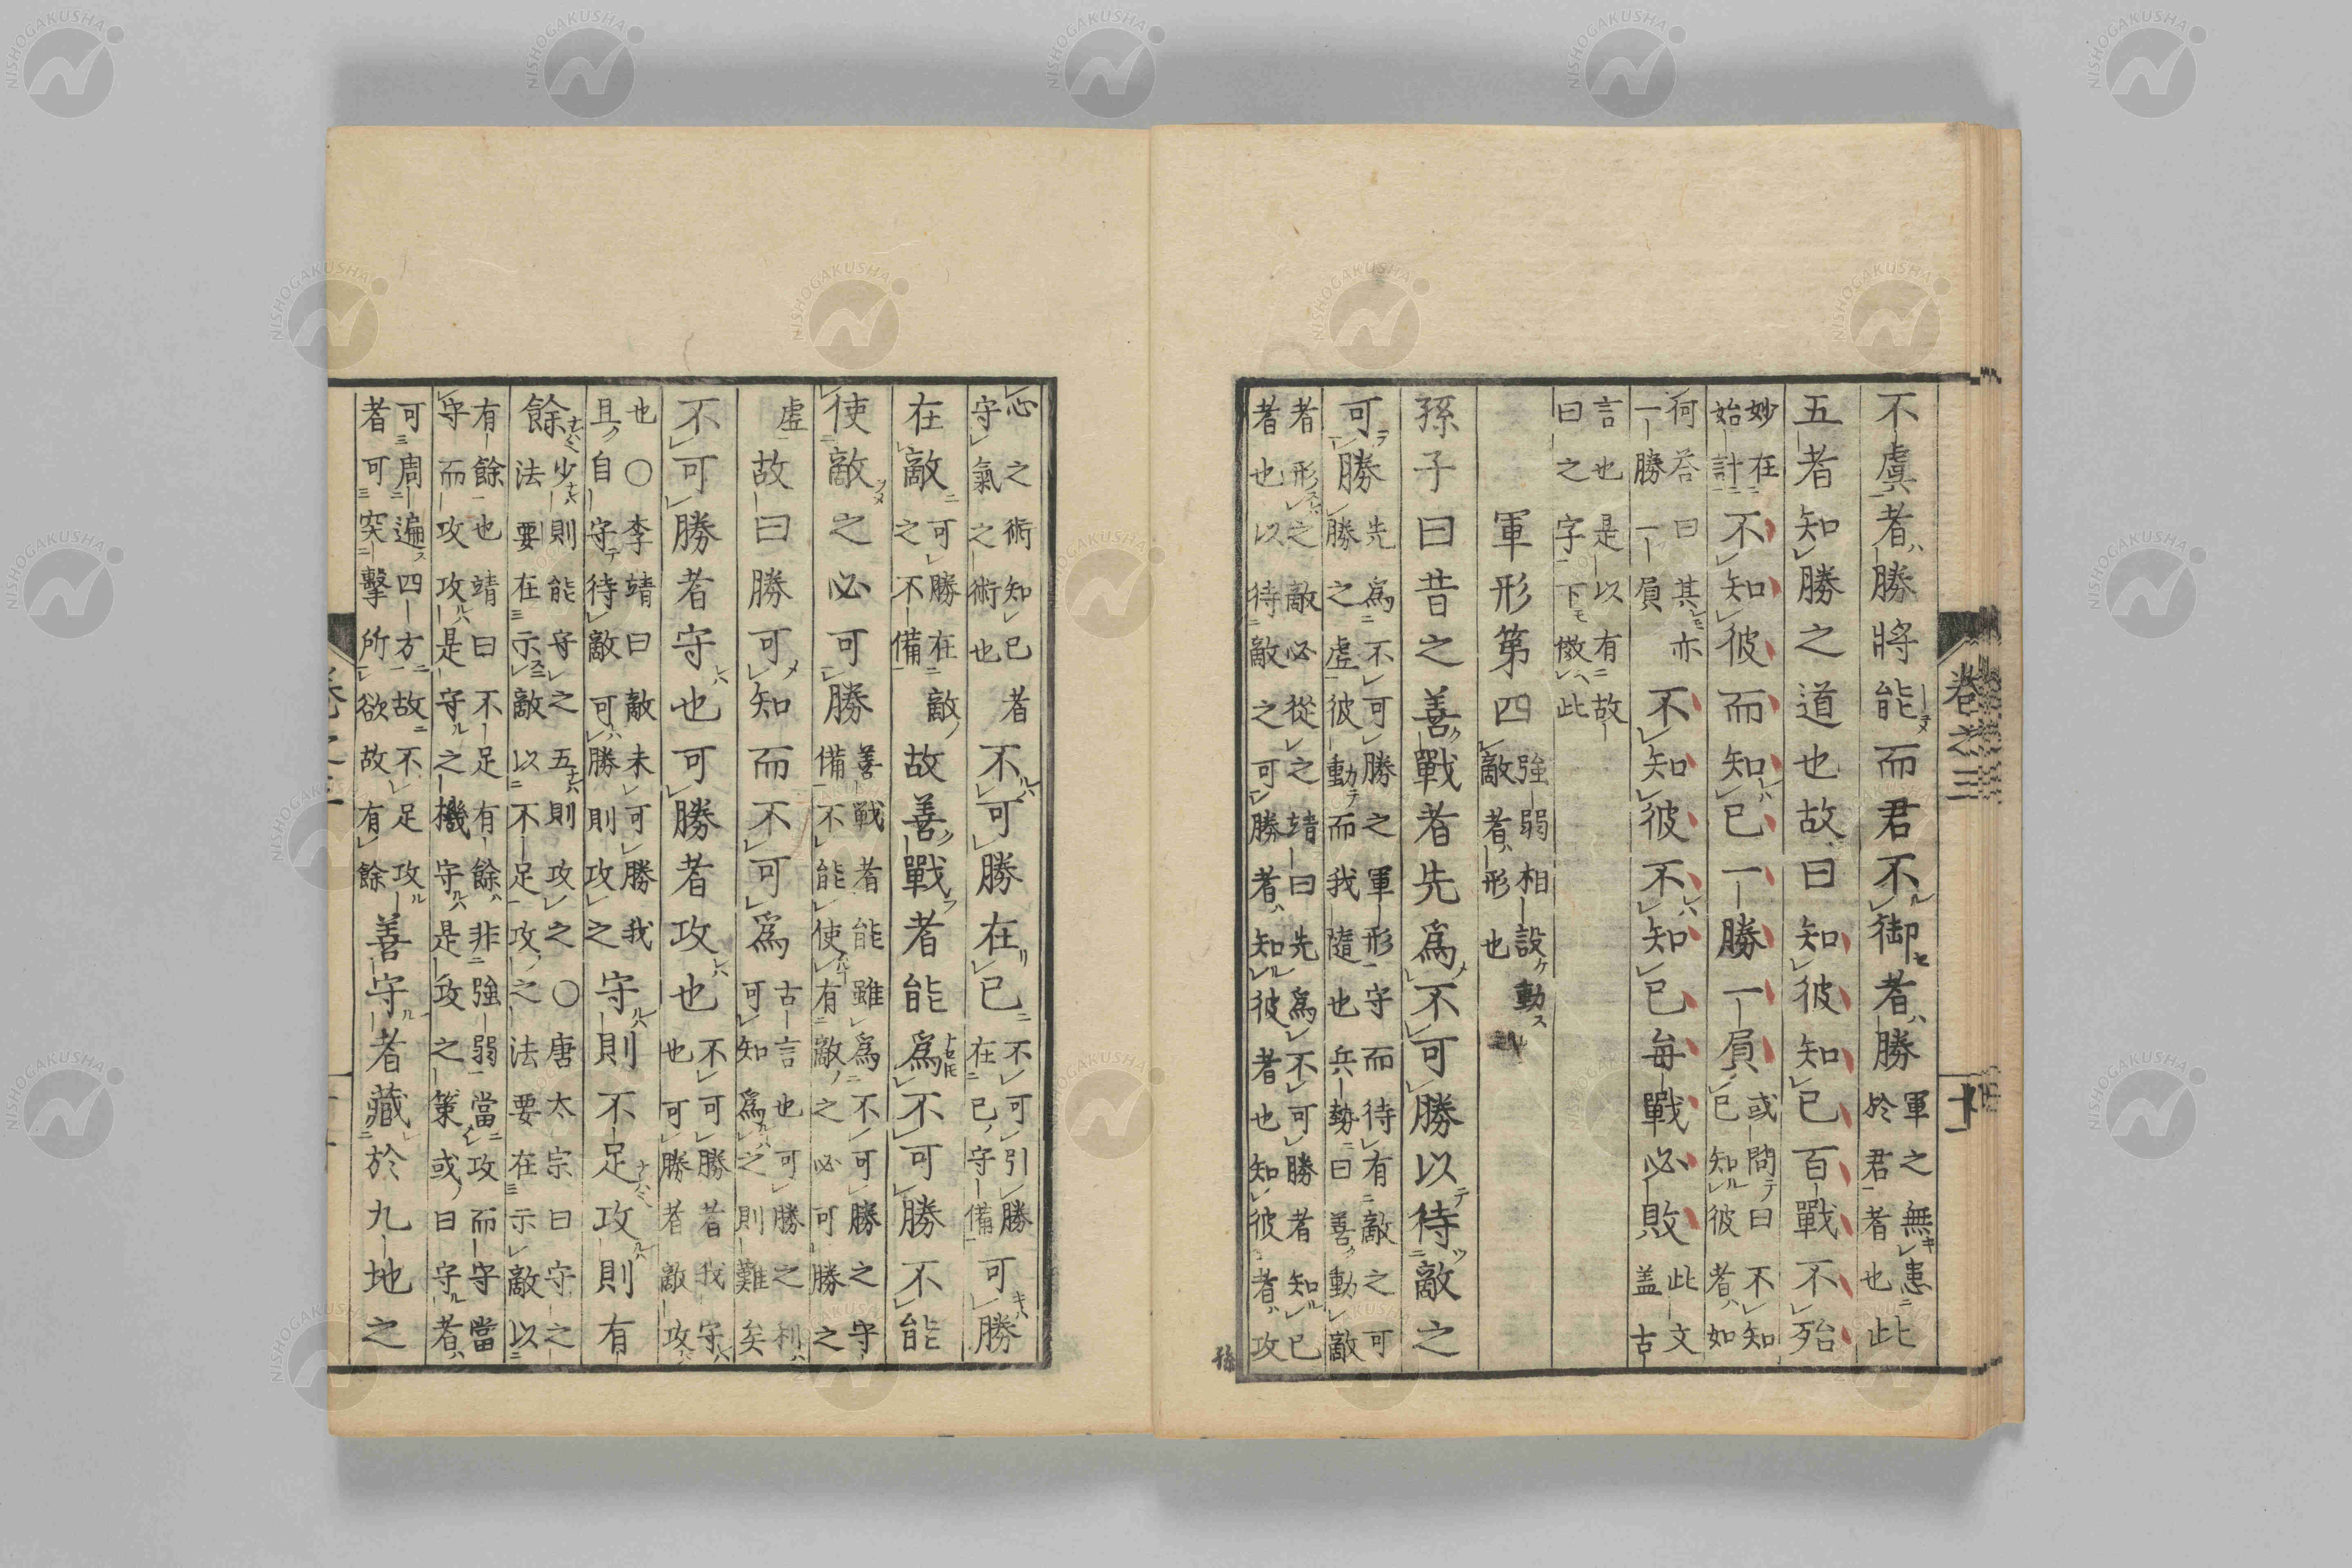 卷之三
十一
不虞者勝將能而君不御者勝
軍之無恚
於君者也
此
五者知勝之道也故曰知彼知已百戰不殆
妙在
始計
不知彼而知已一勝一負
或問曰不知
已知彼者如
何荅曰其亦
一勝一負
不知彼不知已每戰必敗
此文
盖古
言也是以有故
曰之字下倣此
軍形第四
強弱相設動
敵者形也
孫子曰昔之善戰者先爲不可勝以待敵之
可勝
先爲不可勝之軍形守而待有敵之可
勝之虚彼動而我隨也兵勢曰善動敵
者形之敵必從之靖曰先爲不可勝者知已
者也以待敵之可勝者知彼者也知彼者攻
孫
心之術知已者
守氣之術也
不可勝在已
不可引勝
在已守備
可勝
在敵
可勝在敵
之不備
故善戰者能爲不可勝不能
使敵之必可勝
善戰者能雖爲不可勝之守
備不能使有敵之必可勝之
虚
故曰勝可知而不可爲
古言也可勝之利
可知爲之則難矣
不可勝者守也可勝者攻也
不可勝者我守
也可勝者敵攻
也○李靖曰敵未可勝我
且自守待敵可勝則攻之
守則不足攻則有
餘
少則能守之五則攻之○唐太宗曰守之
法要在示敵以不足攻之法要在示敵以
有餘也靖曰不足有餘非強弱當攻而守當
守而攻攻是守之機守是攻之策或曰守者
可周遍四方故不足攻
者可突擊所欲故有餘
善守者藏於九地之
NISHOGAKUSHA